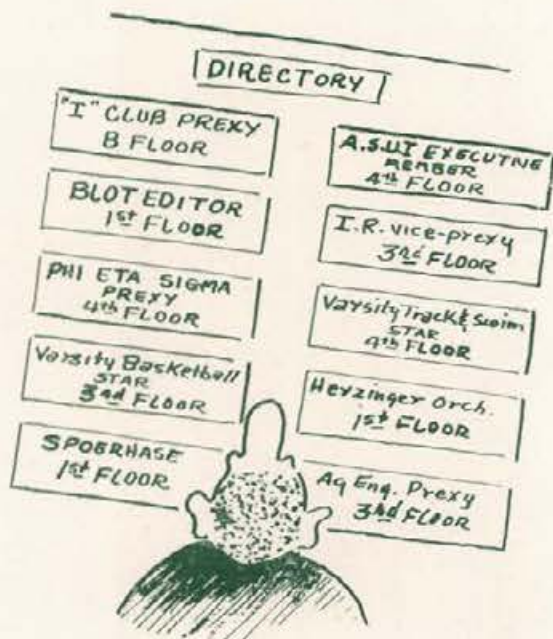 DIRECTORY
"I" CLUB PREXY
B FLOOR
BLOT EDITOR
1st FLOOR
PHI ETA SIGMA
PREXY
4th FLOOR
Varsity Basketball
STAR
3rd FLOOR
SPOERHASE
1st FLOOR
A.S.U.I EXECUTIVE
MEMBER
4th FLOOR
I.R. vice-prexy
3rd FLOOR
Varsity Track & Swim
STAR
4th FLOOR
Herzinger Orch.
1st FLOOR
Ag Eng. Prexy
3rd FLOOR